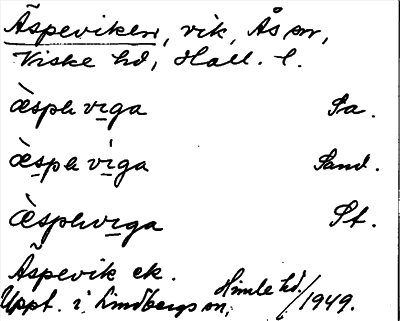 Äspeviken, vik, Ås sn,
Viske hd, Hall. l.
æ̀speviga Sa.
æ̀spe viga Sand.
æ̀speviga St.
Äspevik ek.
Uppt. i Lindbergs sn, Himle hd./1949.